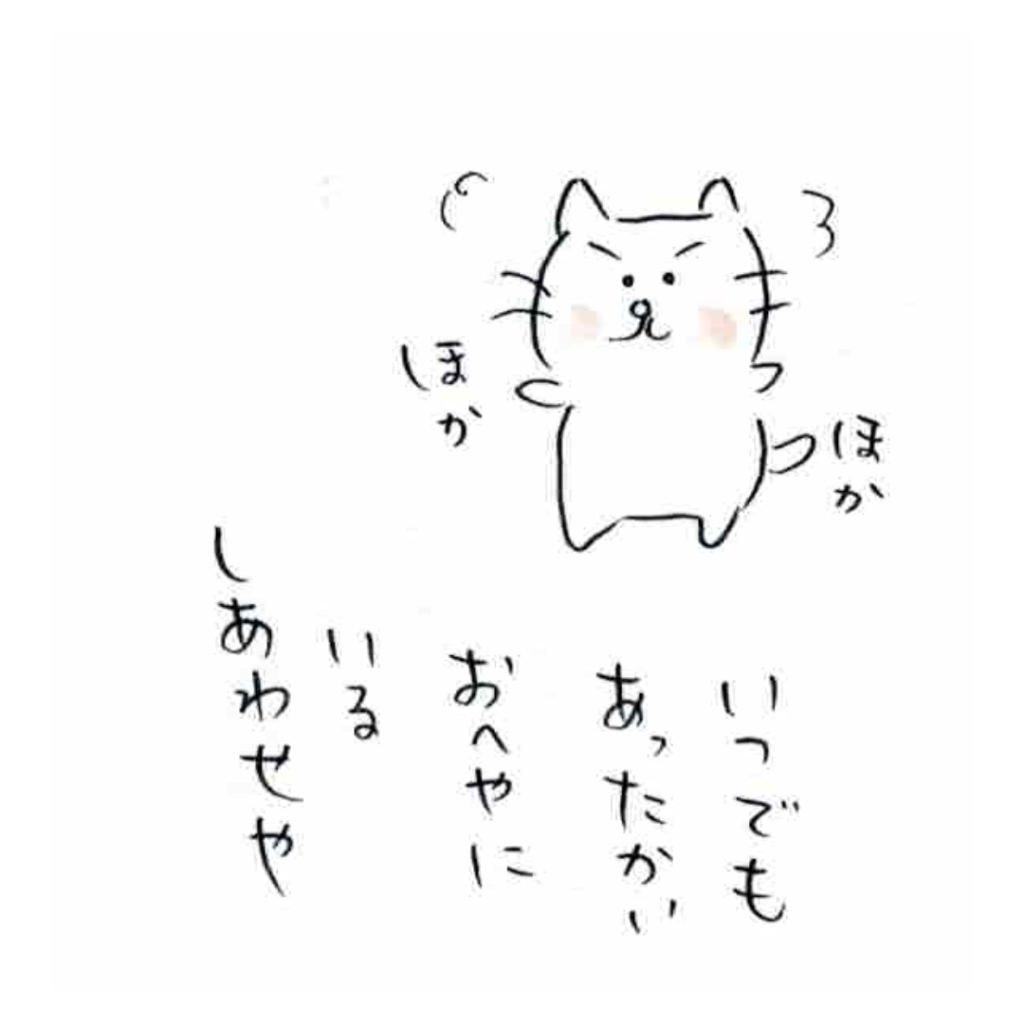 ほか
ほか
いつでも
あったかい
おへやに
いる
しあわせや